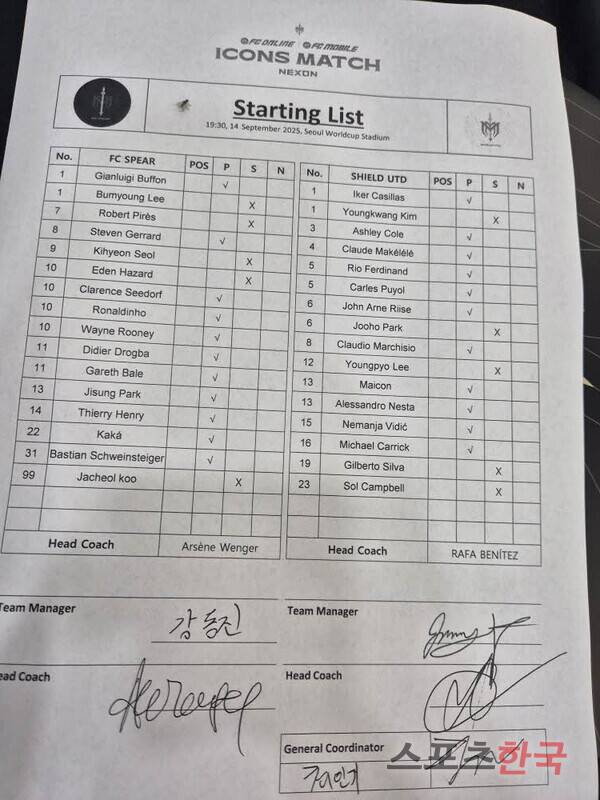 FC ONLINE FC MOBILE
ICONS MATCH
NEXON
Starting List
19:30, 14 September 2025, Seoul Worldcup Stadium
No. FC SPEAR POS P S N
1 Gianluigi Buffon √
1 Bumyoung Lee X
7 Robert Pirès X
8 Steven Gerrard √
9 Kihyeon Seol X
10 Eden Hazard X
10 Clarence Seedorf √
10 Ronaldinho √
10 Wayne Rooney √
11 Didier Drogba √
11 Gareth Bale √
13 Jisung Park √
14 Thierry Henry √
22 Kaká √
31 Bastian Schweinsteiger √
99 Jacheol koo X
Head Coach Arsène Wenger
No. SHIELD UTD POS P S N
1 Iker Casillas √
1 Youngkwang Kim X
3 Ashley Cole √
4 Claude Makélélé √
5 Rio Ferdinand √
5 Carles Puyol √
6 John Arne Riise √
6 Jooho Park X
8 Claudio Marchisio √
12 Youngpyo Lee X
13 Maicon √
13 Alessandro Nesta √
15 Nemanja Vidić √
16 Michael Carrick √
19 Gilberto Silva X
23 Sol Campbell X
Head Coach RAFA BENÍTEZ
Team Manager 강동진
ead Coach
Team Manager
Head Coach
General Coordinator
스포츠한국